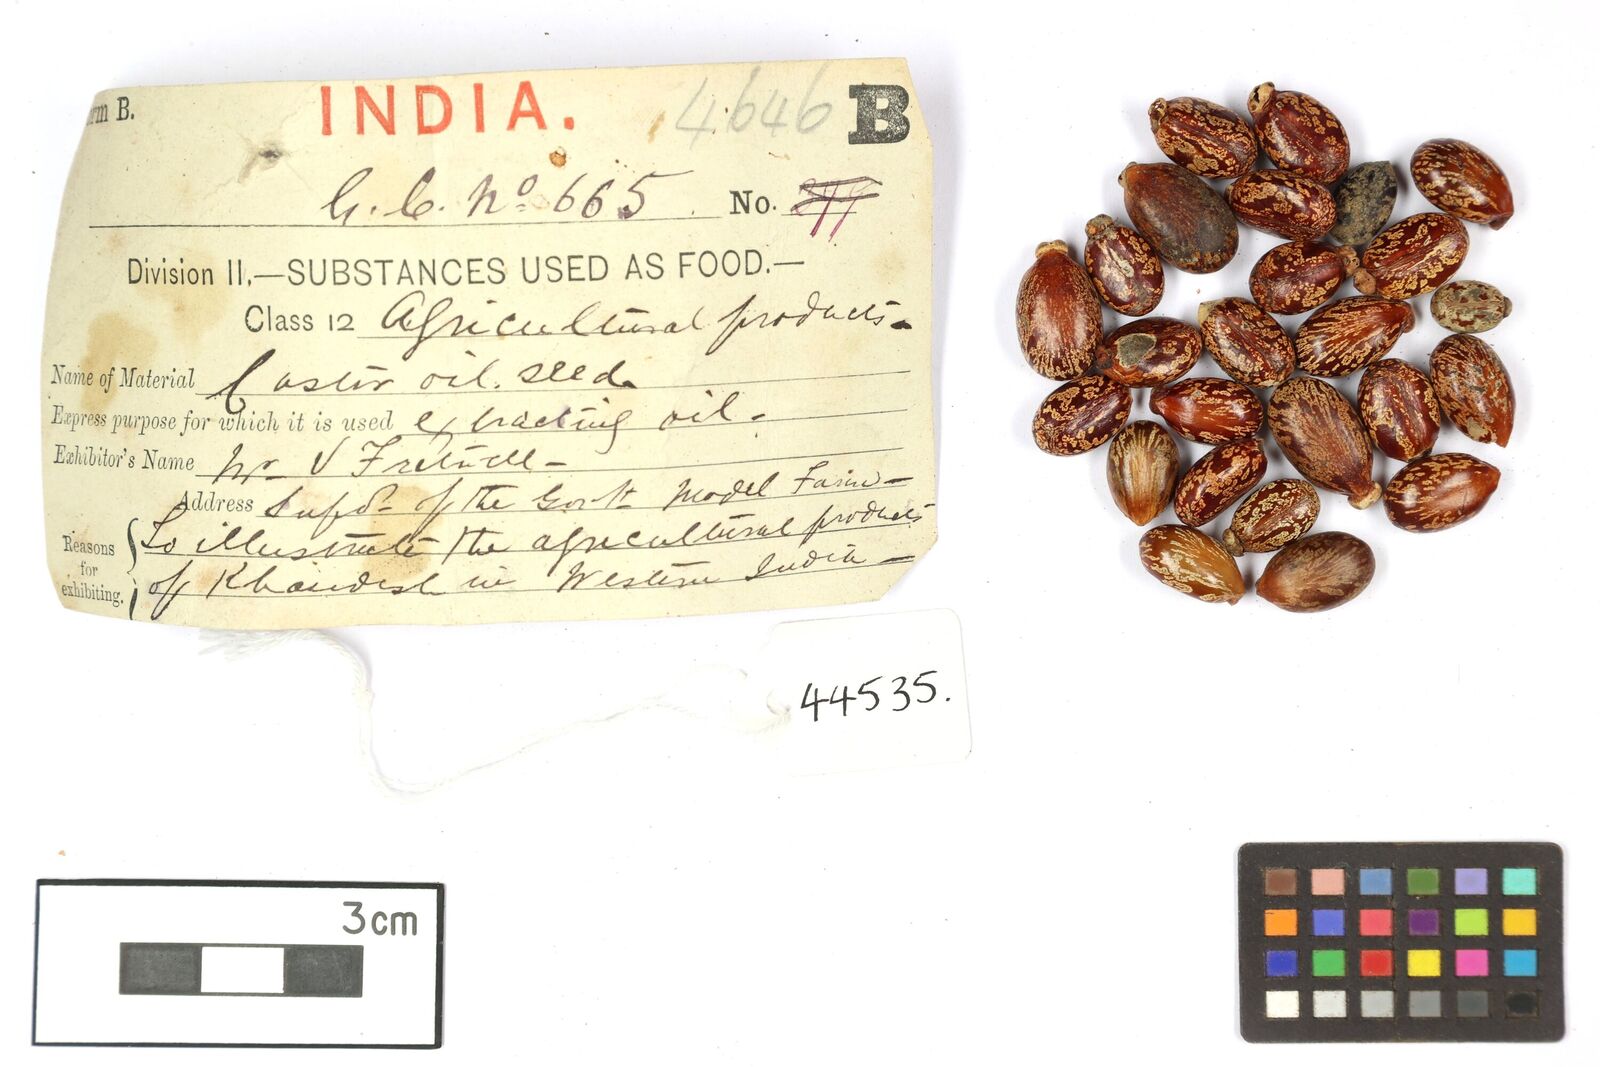 rm B. INDIA. 4646 B
G. C. No. 665. No.
Division II.—SUBSTANCES USED AS FOOD.—
Class 12 Agricultural products.
Name of Material Castor oil. seed.
Express purpose for which it is used extracting oil.
Exhibitor's Name Mr
Address Supdt of the Govt Model Farm
Reasons for exhibiting. To illustrate the agricultural products
of Khandesh in Western India
44535.
3cm